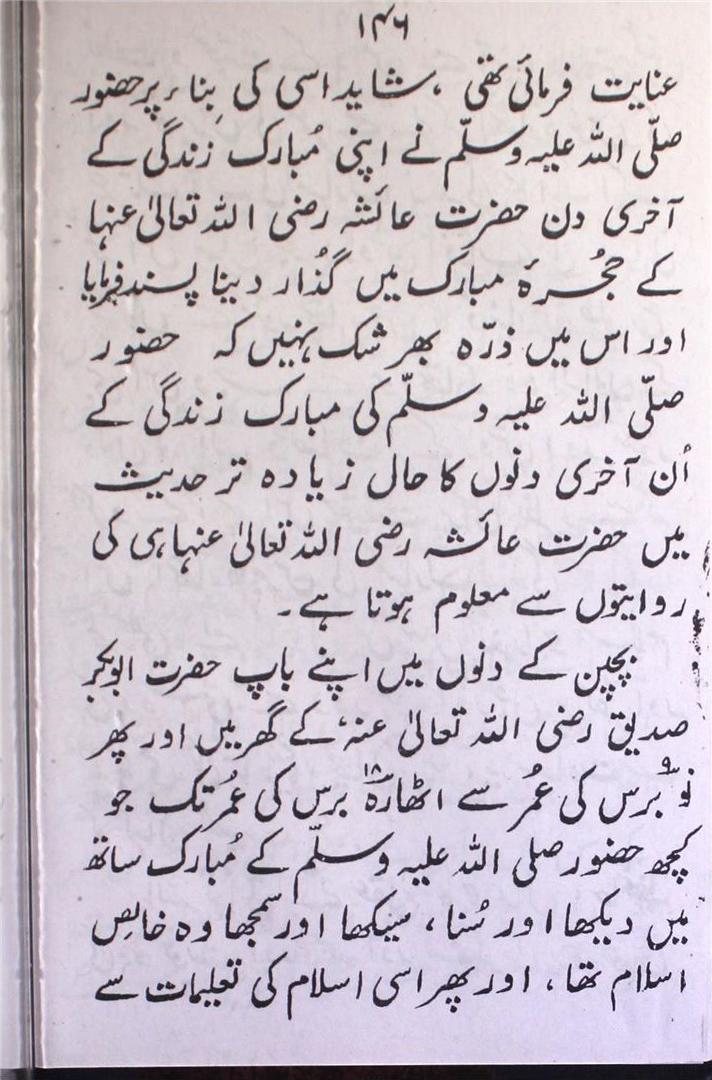 ۱۴۶
عنایت فرمائی تھی ، شاید اسی کی بِناء پر حضور
صلّی اللہ علیہ وسلّم نے اپنی مُبارک زندگی کے
آخری دن حضرت عائشہ رضی اللہ تعالیٰ عنہا
کے حُجرۂ مبارک میں گذُار دینا پسند فرمایا
اور اس میں ذرّہ بھر شک نہیں کہ حضور
صلّی اللہ علیہ وسلّم کی مبارک زندگی کے
اُن آخری دنوں کا حال زیادہ تر حدیث
میں حضرت عائشہ رضی اللہ تعالیٰ عنہا ہی کی
روایتوں سے معلوم ہوتا ہے۔
بچپن کے دنوں میں اپنے باپ حضرت ابوبکر
صدیق رضی اللہ تعالیٰ عنہٗ کے گھر میں اور پھر
نو۹ برس کی عمُر سے اٹھارہ۱۸ برس کی عمُر تک جو
کچھ حضور صلی اللہ علیہ وسلّم کے مُبارک ساتھ
میں دیکھا اور سُنا ، سیکھا اور سمجھا وہ خالِص
اسلام تھا ، اور پھر اسی اسلام کی تعلیمات سے